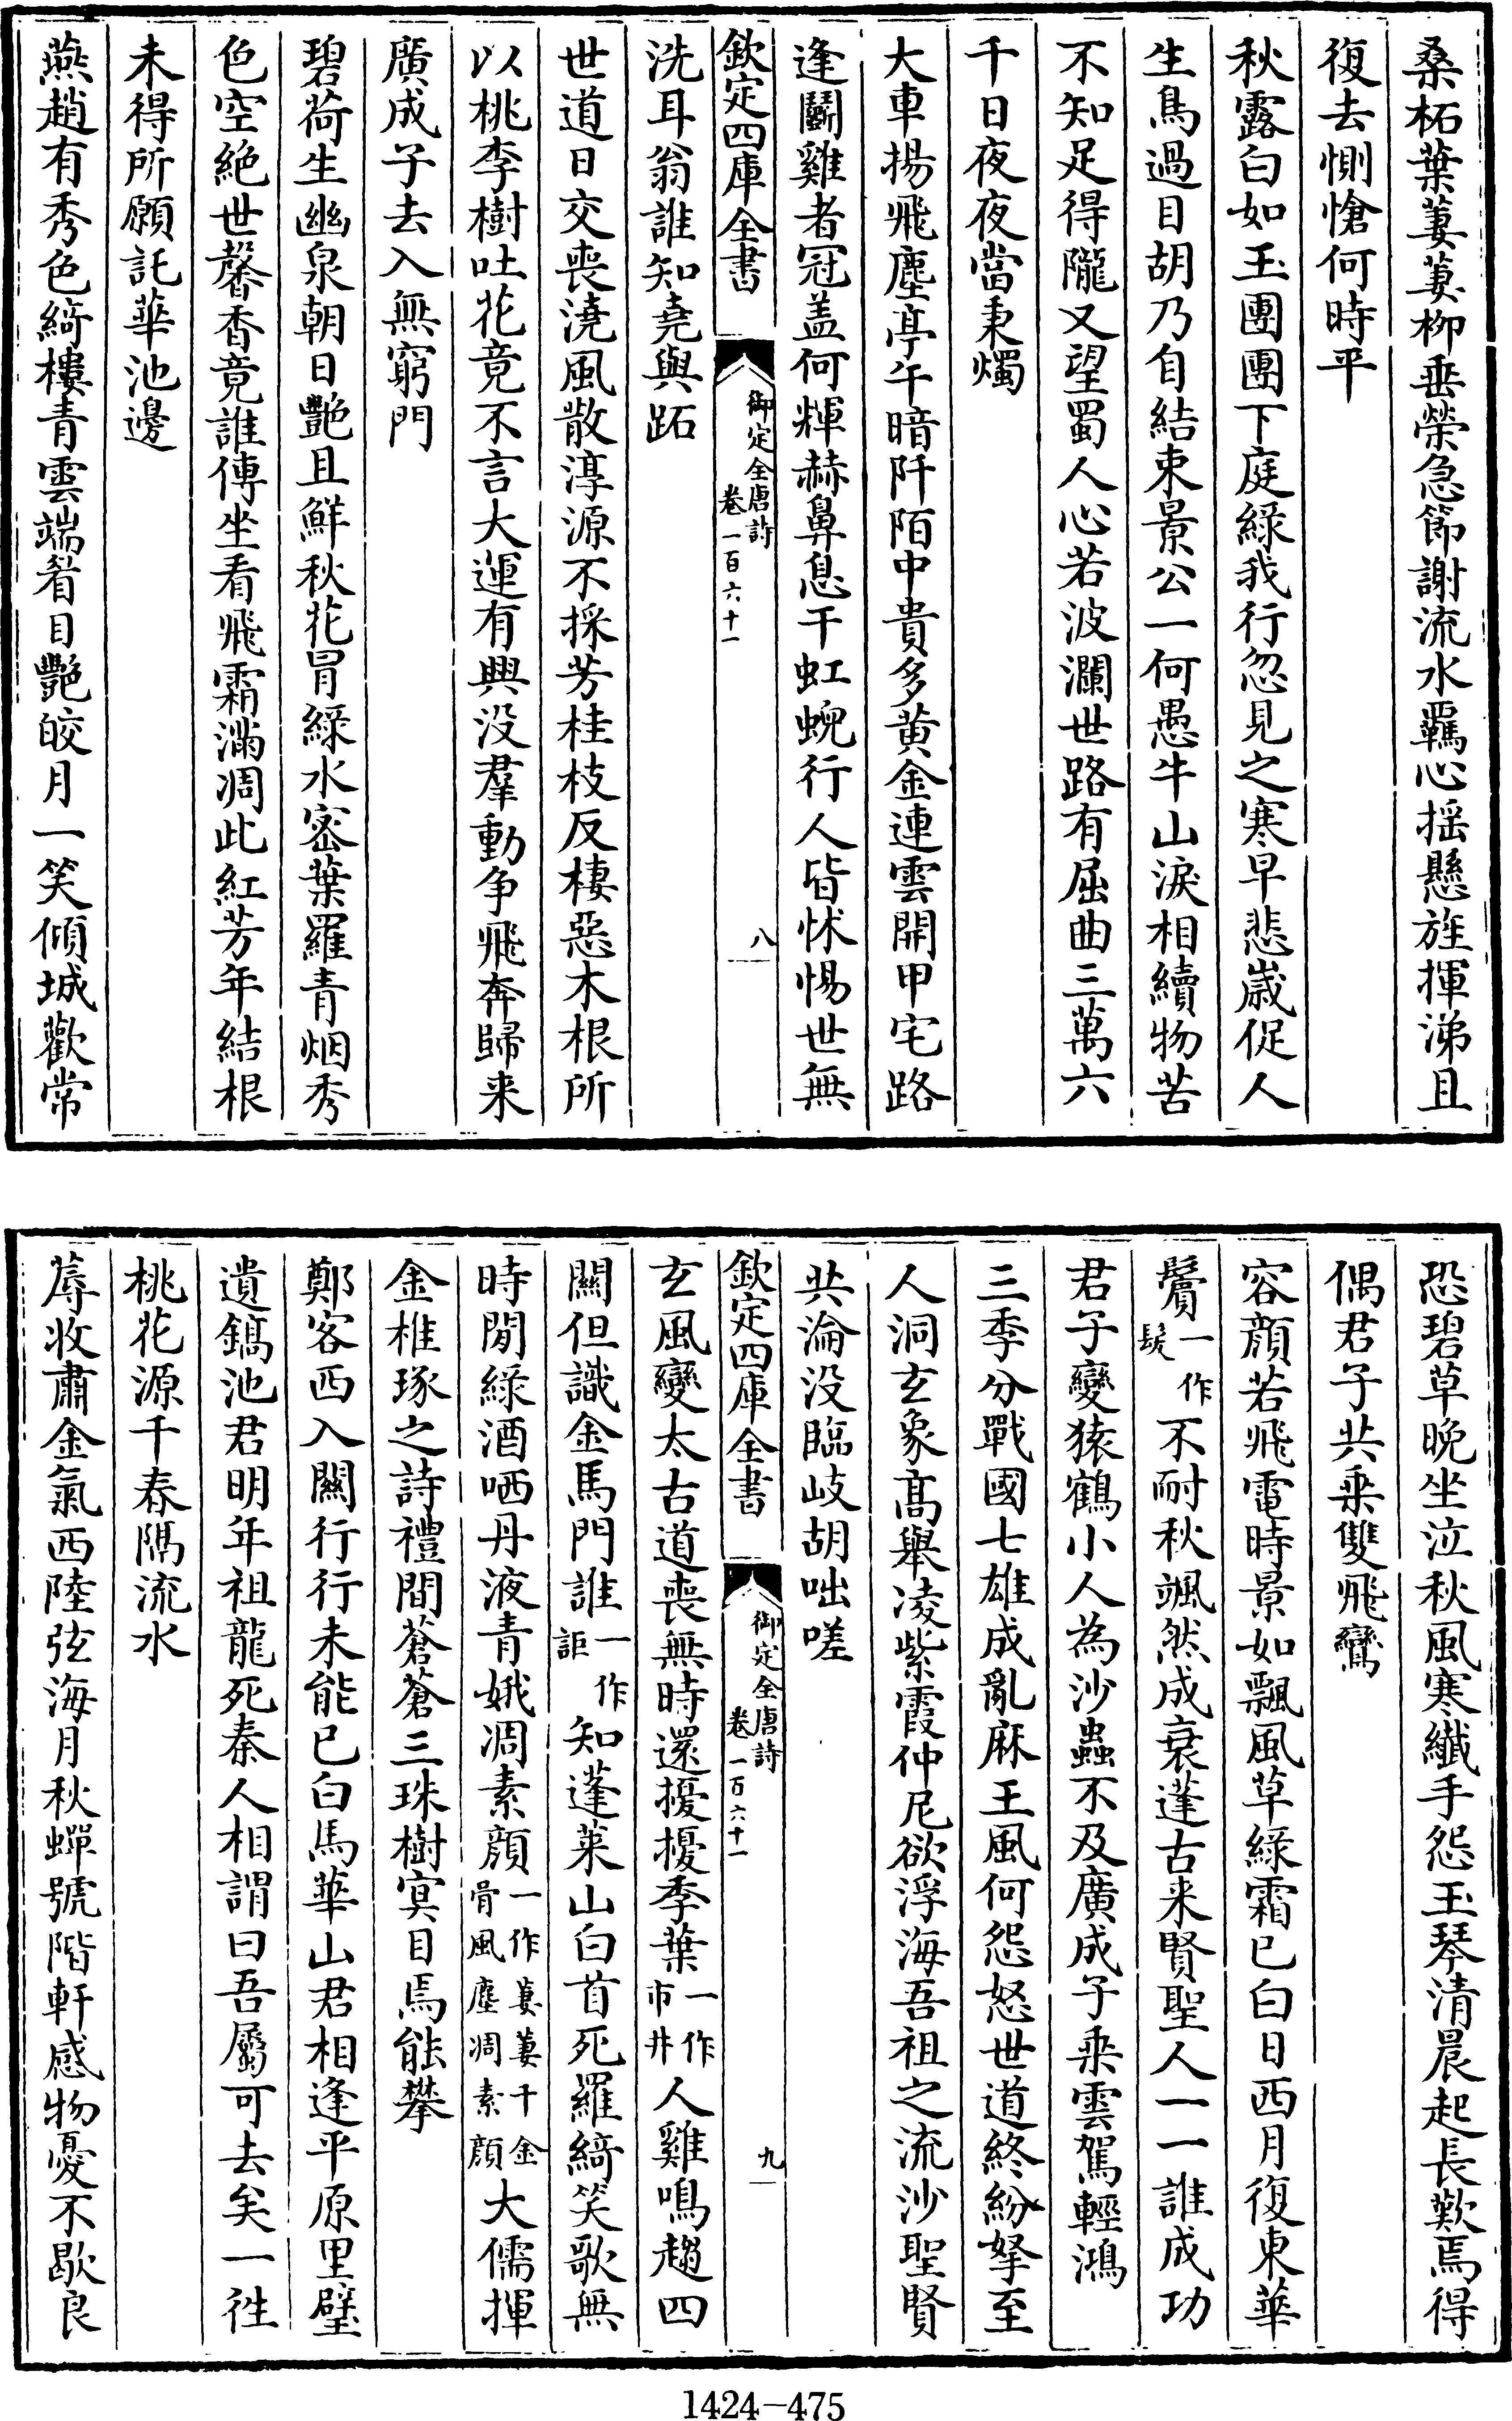 桑柘葉萋萋柳垂榮急節謝流水羈心揺懸旌揮涕且
復去惻愴何時平
秋露白如玉團團下庭綠我行忽見之寒早悲歳促人
生鳥過目胡乃自結束景公一何愚牛山淚相續物苦
不知足得隴又望蜀人心若波瀾世路有屈曲三萬六
千日夜夜當秉燭
大車揚飛塵亭午暗阡陌中貴多黄金連雲開甲宅路
逢鬬雞者冠盖何輝赫鼻息干虹蜺行人皆怵惕世無
欽定四庫全書
御定全唐詩
卷一百六十一
八
洗耳翁誰知堯與跖
世道日交喪澆風散淳源不採芳桂枝反棲惡木根所
以桃李樹吐花竟不言大運有興没羣動争飛奔歸来
廣成子去入無窮門
碧荷生幽泉朝日艷且鮮秋花冐綠水宻葉羅青烟秀
色空絶世馨香竟誰傳坐看飛霜滿凋此紅芳年結根
未得所願託華池邊
燕趙有秀色綺樓青雲端眷目艷皎月一笑傾城歡常
恐碧草晚坐泣秋風寒纎手怨玉琴清晨起長歎焉得
偶君子共乗雙飛鸞
容顔若飛電時景如飄風草綠霜已白日西月復東華
鬢一作髮不耐秋颯然成衰蓬古来賢聖人一一誰成功
君子變猿鶴小人為沙蟲不及廣成子乗雲駕輕鴻
三季分戰國七雄成亂麻王風何怨怒世道終紛拏至
人洞玄象髙舉凌紫霞仲尼欲浮海吾祖之流沙聖賢
共淪没臨岐胡咄嗟
欽定四庫全書
御定全唐詩
卷一百六十一
九
玄風變太古道喪無時還擾擾季葉一作市井人雞鳴趨四
關但識金馬門誰一作詎知蓬萊山白首死羅綺笑歌無
時閒綠酒哂丹液青娥凋素顔一作萋萋千金骨風塵凋素顔大儒揮
金椎琢之詩禮間蒼蒼三珠樹㝠目焉能攀
鄭客西入關行行未能已白馬華山君相逢平原里璧
遺鎬池君明年祖龍死秦人相謂曰吾屬可去矣一徃
桃花源千春隔流水
蓐收肅金氣西陸弦海月秋蟬號階軒感物憂不歇良
1424-475